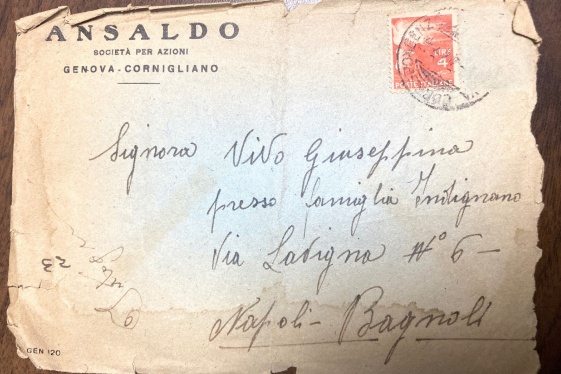 ANSALDO
SOCIETÀ PER AZIONI
GENOVA - CORNIGLIANO
LIRE
4
POSTE ITALIANE
Signora Vivo Giuseppina
presso famiglia Indignano
Via Lavigna N° 6 -
Napoli - Bagnoli
23
GEN 120